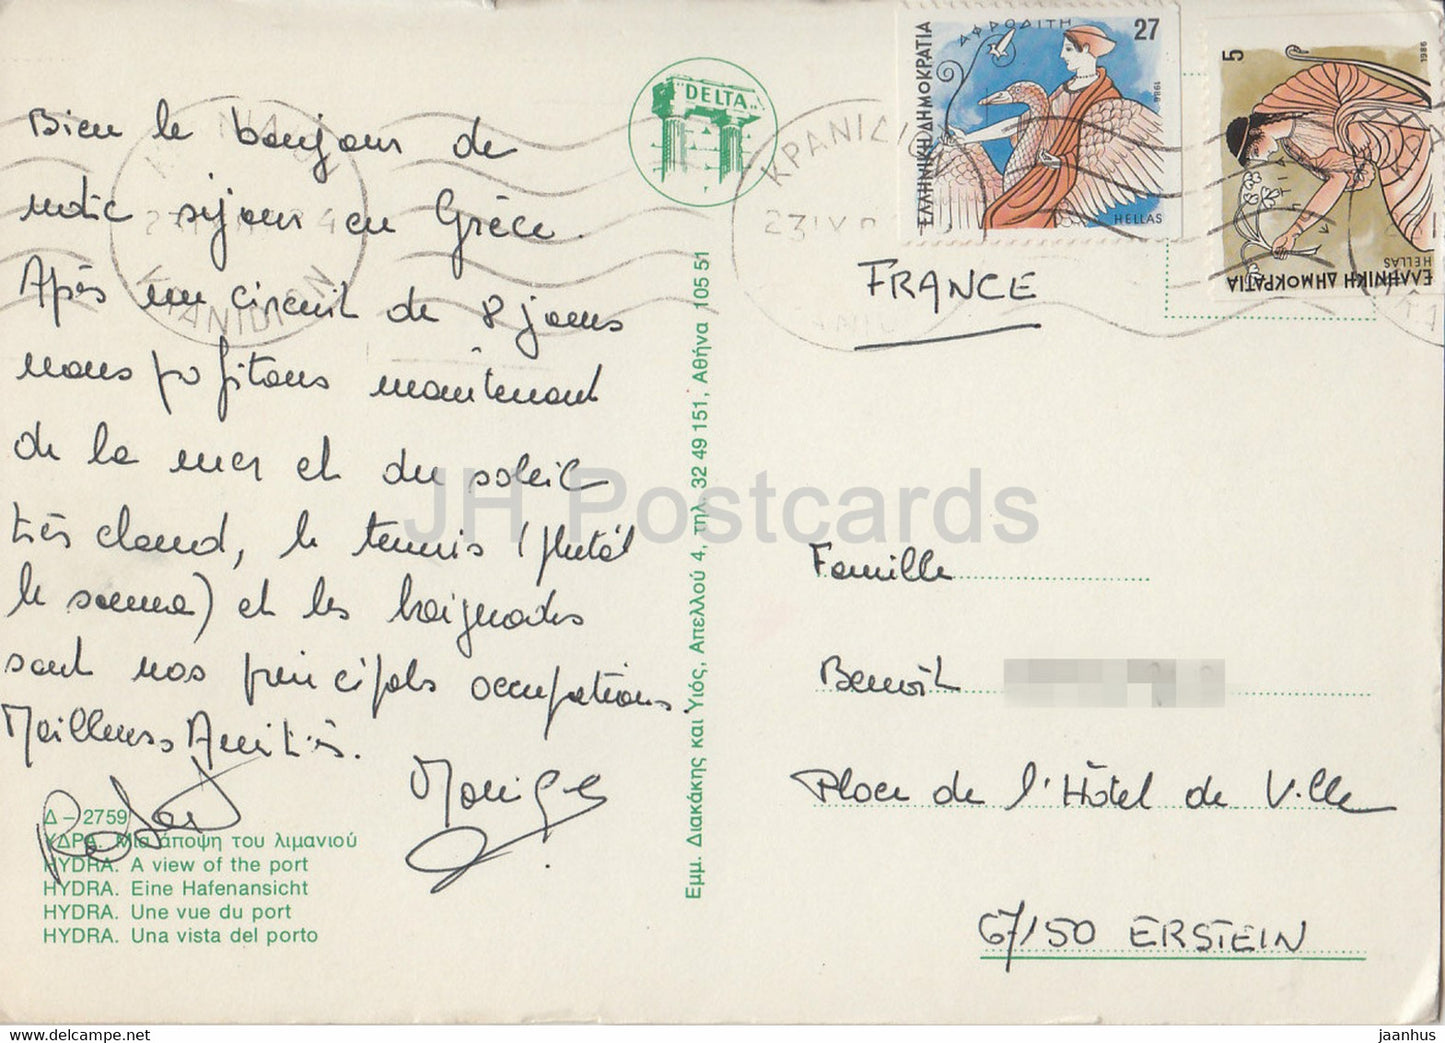 Bien le bonjour de
notre séjour en Grèce.
Après un circuit de 8 jours
nous profitons maintenant
de la mer et du soleil
très chaud, le tennis (plutôt
le sauna) et les baignades
sont nos principals occupations.
Meilleures Amitiés.
Robert
Monique
Δ – 2759
ΥΔΡΑ. Μία άποψη του λιμανιού
HYDRA. A view of the port
HYDRA. Eine Hafenansicht
HYDRA. Une vue du port
HYDRA. Una vista del porto
DELTA
Εμμ. Διακάκης και Υιός, Απελλού 4, τηλ. 32 49 151, Αθήνα 105 51
ΚΡΑΝΙΔΙΟΝ
ΑΦΡΟΔΙΤΗ
27
ΕΛΛΗΝΙΚΗ ΔΗΜΟΚΡΑΤΙΑ
1986
HELLAS
5
1986
ΕΛΛΗΝΙΚΗ ΔΗΜΟΚΡΑΤΙΑ
HELLAS
FRANCE
Famille
Benoît
Place de l'Hôtel de Ville
67150 ERSTEIN
JH Postcards
https://jhpostcard.com
jaanhus